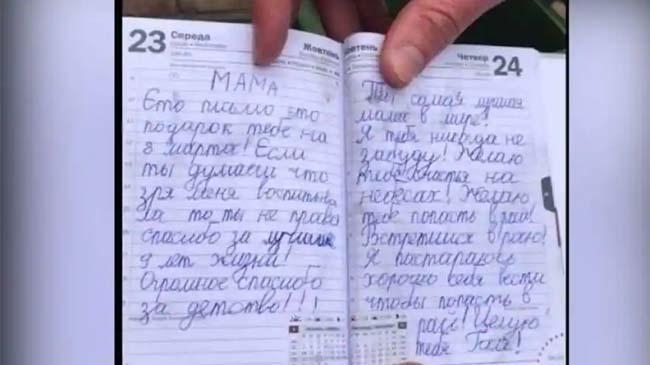 23 Середа
Жовтень
МАМА
Ето письмо ето
подарок тебе на
8 марта! Если
ты думаеш что
зря меня воспитыва
ла то ты не права
спасибо за лучшие
9 лет жизни!
Огромное спасибо
за детство!!!
Жовтень
Четвер 24
Ты самая лучшая
мама в мире!
Я тебя никогда не
забуду! Желаю
тебе счастья на
небесах! Желаю
тебе попасть в рай!
Встретимся в раю!
Я постараюсь
хорошо себя вести
чтобы попасть в
рай! Целую
тебя Галя!